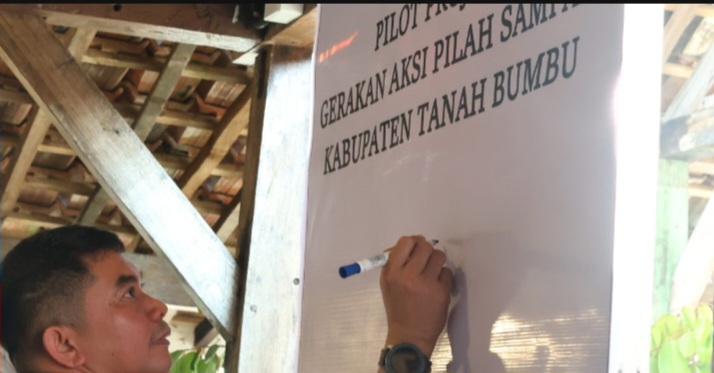 PILOT
GERAKAN AKSI PILAH
KABUPATEN TANAH BUMBU